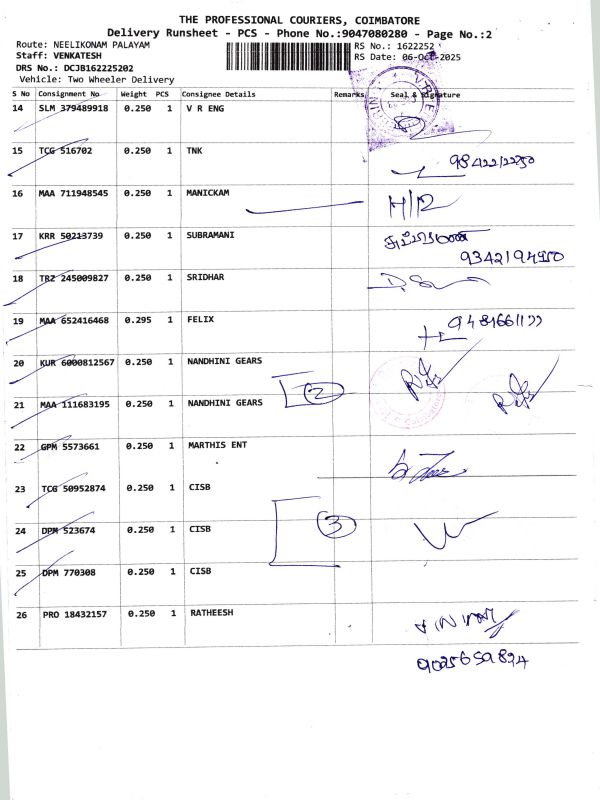 THE PROFESSIONAL COURIERS, COIMBATORE
Delivery Runsheet - PCS - Phone No.:9047080280 - Page No.:2
Route: NEELIKONAM PALAYAM
RS No.: 1622252
Staff: VENKATESH
RS Date: 06-Oct-2025
DRS No.: DCJB162225202
Vehicle: Two Wheeler Delivery
S No Consignment No Weight PCS Consignee Details Remarks Seal & Signature
14 SLM 379489918 0.250 1 V R ENG
15 TCG 516702 0.250 1 TNK
16 MAA 711948545 0.250 1 MANICKAM
H/R
17 KRR 50213739 0.250 1 SUBRAMANI
9342194950
18 TRZ 245009827 0.250 1 SRIDHAR
19 MAA 652416468 0.295 1 FELIX
20 KUR 6000812567 0.250 1 NANDHINI GEARS
2
21 MAA 111683195 0.250 1 NANDHINI GEARS
22 GPM 5573661 0.250 1 MARTHIS ENT
23 TCG 50952874 0.250 1 CISB
24 DPM 523674 0.250 1 CISB
3
25 DPM 770308 0.250 1 CISB
26 PRO 18432157 0.250 1 RATHEESH
9025659824